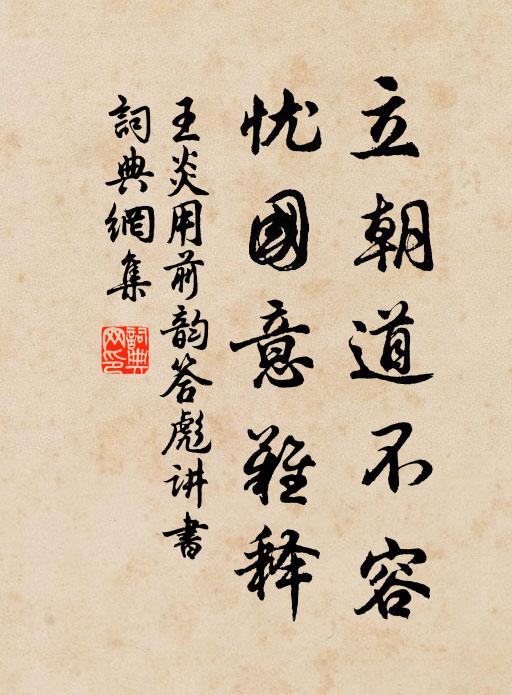 立朝道不容
忧國意難释
王炎用前韵答彪讲書
詞典網集
詞典网印